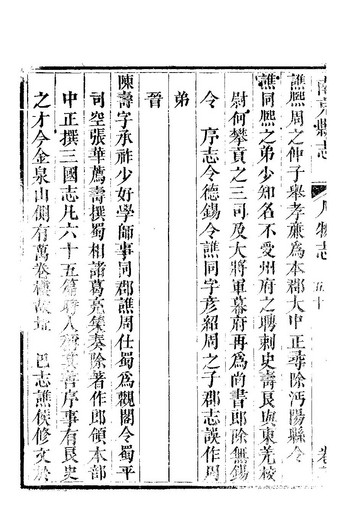 南充縣志 人物志 五十
譙熙周之仲子舉孝廉為本郡大中正尋除沔陽縣令
譙同熙之弟少知名不受州府之聘刺史壽良與東羌校
尉何攀貢之三司及大將軍幕府再為尚書郎除無錫
令 序志令德錫令譙同字彥紹周之子郡志誤作周
弟
晉
陳壽字承祚少好學師事同郡譙周仕蜀為觀閣令蜀平
司空張華薦壽撰蜀相諸葛亮集奏除著作郎領本郡
中正撰三國志凡六十五篇時人稱其善序事有良史
之才今金泉山側有萬卷樓故址 巴志譙侯修文於